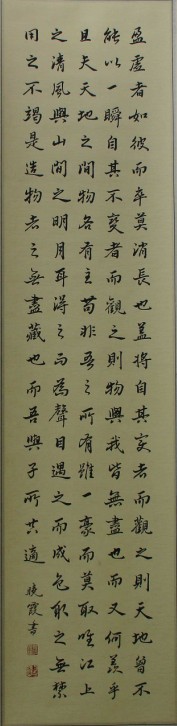 盈虛者如彼而卒莫消長也蓋將自其変者而觀之則天地曾不
能以一瞬自其不变者而觀之則物與我皆無盡也而又何羨乎
且夫天地之間物各有主苟非吾之所有雖一豪而莫取唯江上
之清風與山間之明月耳得之而為聲目遇之而成色取之無禁
用之不竭是造物者之無盡藏也而吾與子所共適 曉霞書